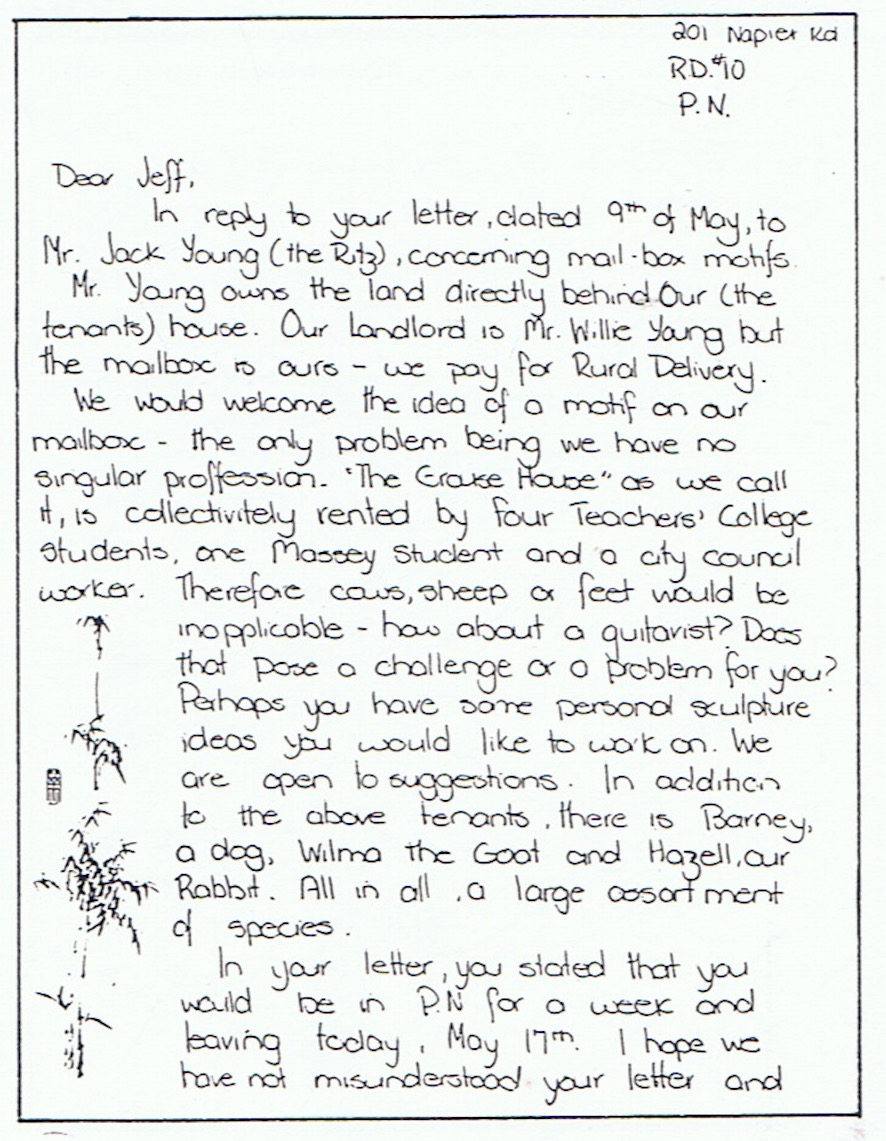 201 Napier Rd
RD.#10
P.N.
Dear Jeff,
In reply to your letter, dated 9th of May, to
Mr. Jack Young (the Ritz), concerning mail-box motifs.
Mr. Young owns the land directly behind Our (the
tenants) house. Our Landlord is Mr. Willie Young but
the mailbox is ours - we pay for Rural Delivery.
We would welcome the idea of a motif on our
mailbox - the only problem being we have no
singular proffession. "The Grake House" as we call
it, is collectivitely rented by four Teachers' College
students, one Massey Student and a city council
worker. Therefore cows, sheep or feet would be
inapplicable - how about a guitarist? Does
that pose a challenge or a problem for you?
Perhaps you have some personal sculpture
ideas you would like to work on. We
are open to suggestions. In addition
to the above tenants, there is Barney,
a dog, Wilma the Goat and Hazell, our
Rabbit. All in all, a large assortment
of species.
In your letter, you stated that you
would be in P.N for a week and
leaving today, May 17th. I hope we
have not misunderstood your letter and